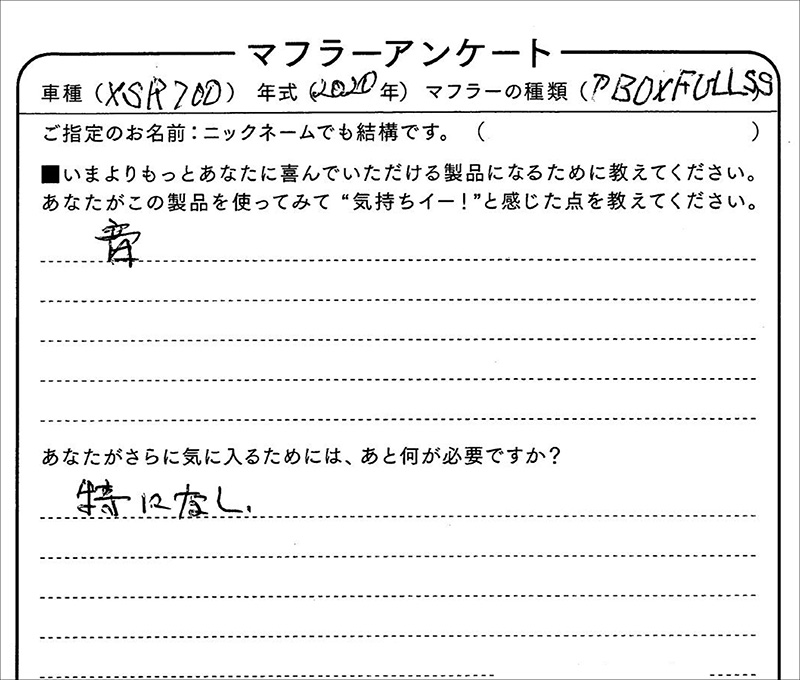 マフラーアンケート
車種（XSR700）年式（2020年）マフラーの種類（PBOXFULLSS）
ご指定のお名前：ニックネームでも結構です。（　　　）
■いまよりもっとあなたに喜んでいただける製品になるために教えてください。
あなたがこの製品を使ってみて“気持ちイー！”と感じた点を教えてください。
音
あなたがさらに気に入るためには、あと何が必要ですか？
特になし.